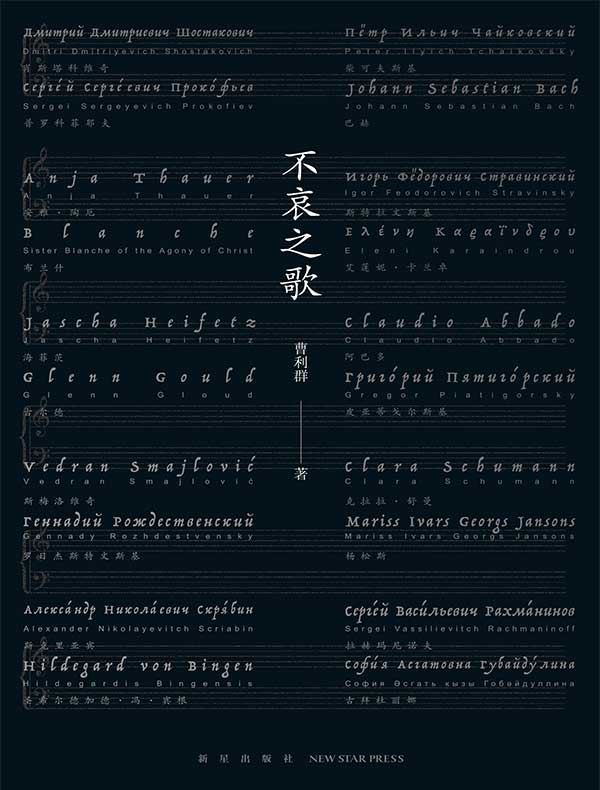 不哀之歌
曹利群
著
Дмитрий Дмитриевич Шостакович
Dmitri Dmitriyevich Shostakovich
肖斯塔科维奇
Серге́й Серге́евич Проко́фьев
Sergei Sergeyevich Prokofiev
普罗科菲耶夫
Anja Thauer
Anja Thauer
安雅·陶厄
Blanche
Sister Blanche of the Agony of Christ
布兰什
Jascha Heifetz
Jascha Heifetz
海菲茨
Glenn Gould
Glenn Gloud
古尔德
Vedran Smajlović
Vedran Smajlović
斯梅洛维奇
Геннадий Рождественский
Gennady Rozhdestvensky
罗日杰斯特文斯基
Алекса́ндр Никола́евич Скря́бин
Alexander Nikolayevitch Scriabin
斯克里亚宾
Hildegard von Bingen
Hildegardis Bingensis
圣希尔德加德·冯·宾根
Пётр Ильич Чайковский
Peter Ilyich Tchaikovsky
柴可夫斯基
Johann Sebastian Bach
Johann Sebastian Bach
巴赫
Игорь Фёдорович Стравинский
Igor Feodorovich Stravinsky
斯特拉文斯基
Ελένη Καραΐνδρου
Eleni Karaindrou
艾莲妮·卡兰卓
Claudio Abbado
Claudio Abbado
阿巴多
Григо́рий Пятиго́рский
Gregor Piatigorsky
皮亚蒂戈尔斯基
Clara Schumann
Clara Schumann
克拉拉·舒曼
Mariss Ivars Georgs Jansons
Mariss Ivars Georgs Jansons
杨松斯
Серге́й Васи́льевич Рахма́нинов
Sergei Vassilievitch Rachmaninoff
拉赫玛尼诺夫
Софи́я Асгатовна Губайду́лина
София Әсгать кызы Гобәйдуллина
古拜杜丽娜
新星出版社 NEW STAR PRESS